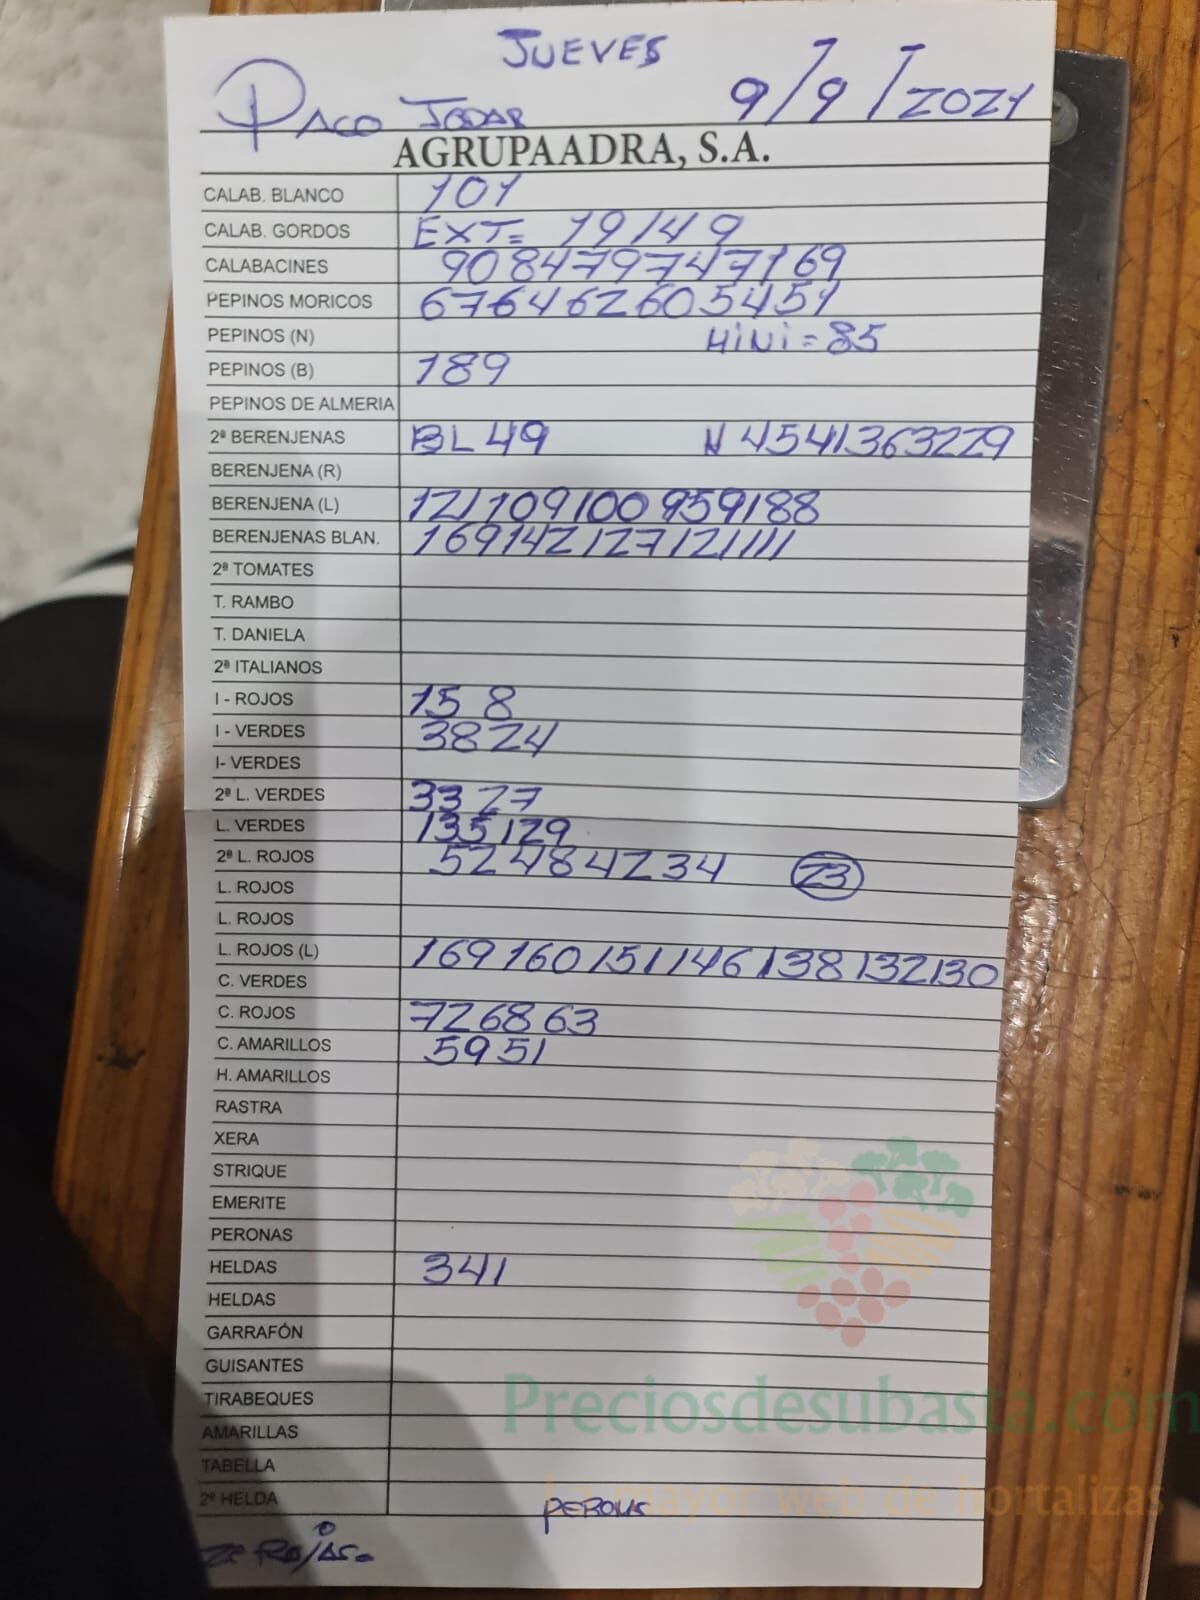 JUEVES
PACO JODAR 9/9/2021
AGRUPAADRA, S.A.
CALAB. BLANCO 101
CALAB. GORDOS EXT= 19/49
CALABACINES 90 84 79 74 71 69
PEPINOS MORICOS 67 64 62 60 54 51
PEPINOS (N) MiNi = 85
PEPINOS (B) 189
PEPINOS DE ALMERIA
2ª BERENJENAS BL 49 N 45 41 36 32 29
BERENJENA (R)
BERENJENA (L) 121 109 100 95 91 88
BERENJENAS BLAN. 169 142 127 121 111
2ª TOMATES
T. RAMBO
T. DANIELA
2ª ITALIANOS
I - ROJOS 15 8
I - VERDES 38 24
I- VERDES
2ª L. VERDES 33 27
L. VERDES 135 129
2ª L. ROJOS 52 48 42 34 23
L. ROJOS
L. ROJOS
L. ROJOS (L) 169 160 151 146 138 132 130
C. VERDES
C. ROJOS 72 68 63
C. AMARILLOS 59 51
H. AMARILLOS
RASTRA
XERA
STRIQUE
EMERITE
PERONAS
HELDAS 341
HELDAS
GARRAFÓN
GUISANTES
TIRABEQUES
Preciosdesubasta.com
AMARILLAS
TABELLA
2ª HELDA
La mayor web de hortalizas